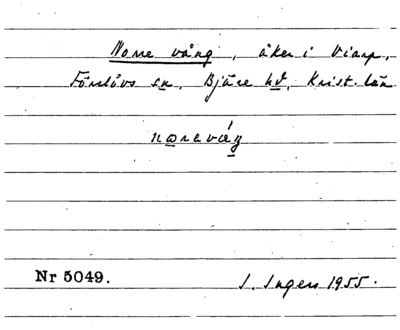 Norre vång, åker i Viarp,
Förslövs sn, Bjäre hd, Krist. län
narevåŋ
Nr 5049.
I. Ingers 1955.